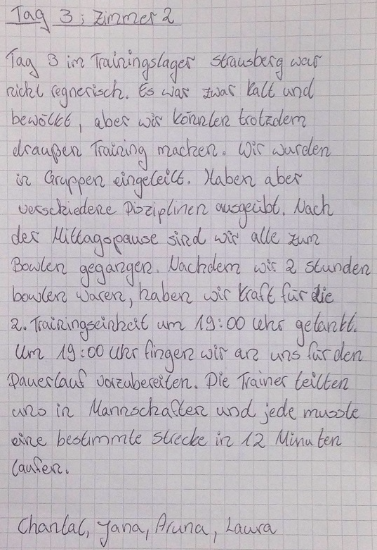 Tag 3; Zimmer 2
Tag 3 im Trainingslager Strausberg war
nicht regnerisch. Es war zwar kalt und
bewölkt, aber wir konnten trotzdem
draußen Training machen. Wir wurden
in Gruppen eingeteilt. Haben aber
verschiedene Disziplinen ausgeübt. Nach
der Mittagspause sind wir alle zum
Bowlen gegangen. Nachdem wir 2 stunden
bowlen waren, haben wir Kraft für die
2. Trainingseinheit um 19:00 Uhr getankt.
Um 19:00 Uhr fingen wir an uns für den
Dauerlauf vorzubereiten. Die Trainer teilten
uns in Mannschaften und jede musste
eine bestimmte Strecke in 12 Minuten
laufen.
Chantal, Jana, Aruna, Laura